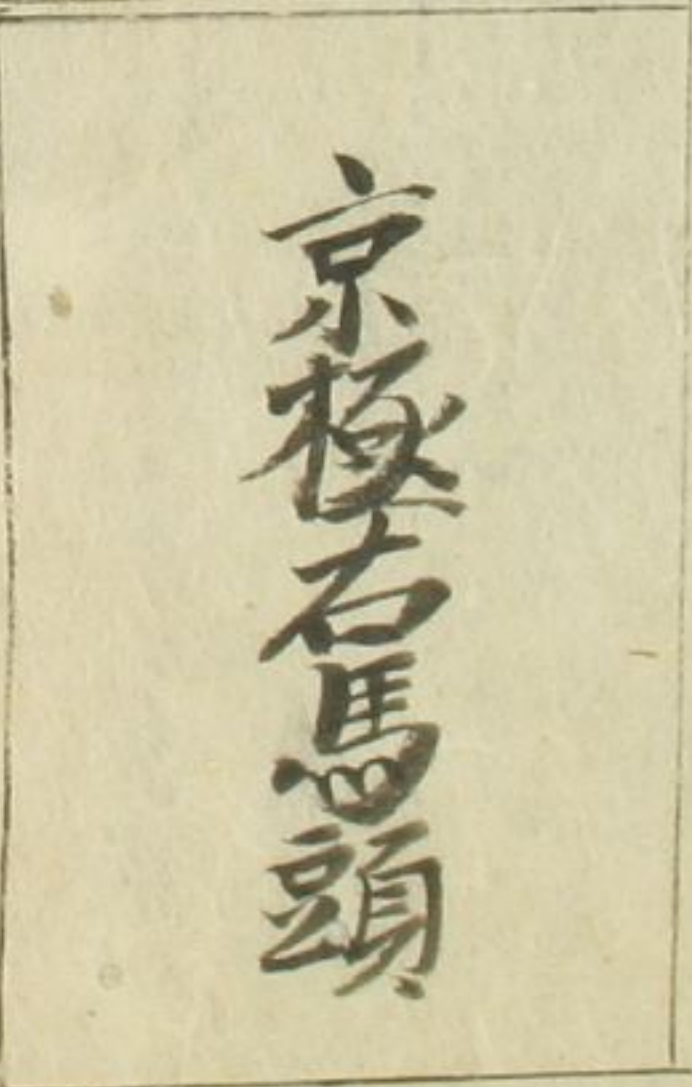 京極右馬頭